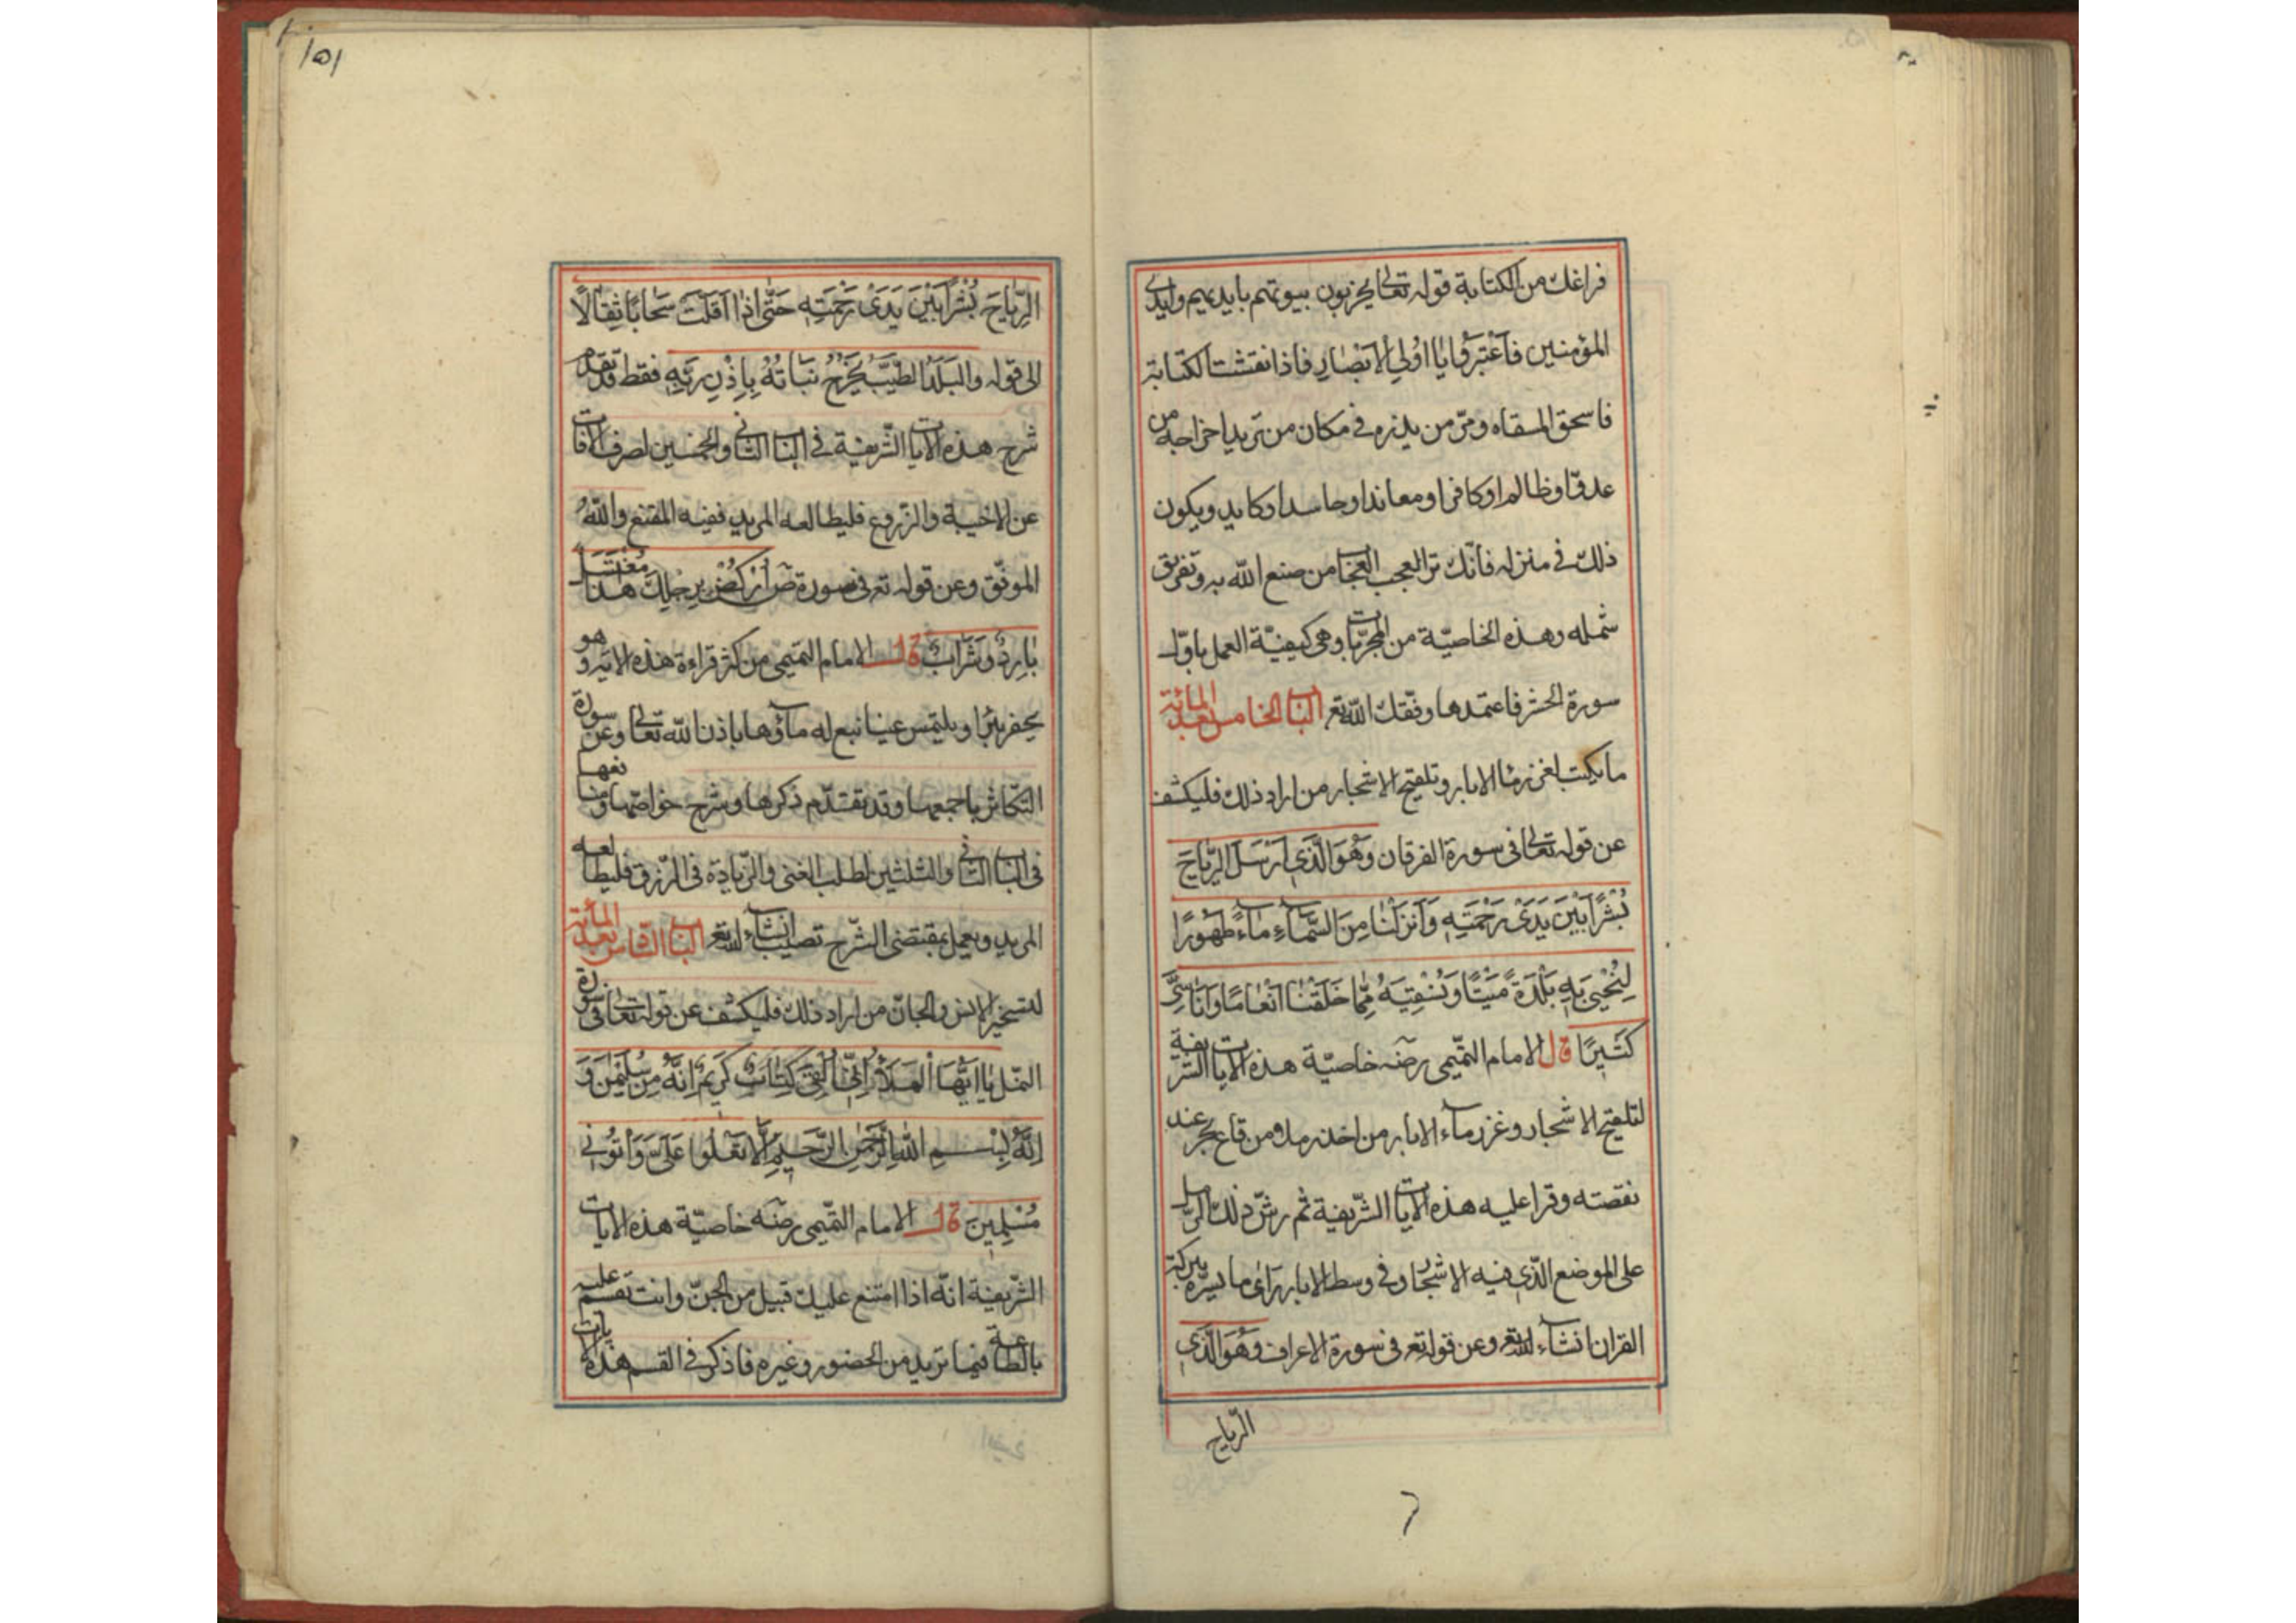 فراغك من الكتابة قوله تعالى يخربون بيوتهم بايديهم وايدي
المؤمنين فَاعْتَبِرُوا يَا اُولِي الْاَبْصَارِ فاذا نقشت الكتابة
فاسحق المسقاه ومر من يذره في مكان من تريد اخراجه من
عدوّ او ظالم او كافر او معاند او حاسد او كايد ويكون
ذلك في منزله فانّك ترا العجب العجاب من صنع الله به وتفريق
شمله وهذه الخاصيّة من المجرّبات وهي كيفيّة العمل باوّل
سورة الحشر فاعتمدها وفّقك الله تع الباب الخامس بعد المائة
ما يكتب لغزر ماء الابار وتلقيح الاشجار من اراد ذلك فليكشف
عن قوله تعالى في سورة الفرقان وَهُوَ الَّذِي اَرْسَلَ الرِّيَاحَ
بُشْرًا بَيْنَ يَدَيْ رَحْمَتِهِ وَاَنْزَلْنَا مِنَ السَّمَاءِ مَاءً طَهُورًا
لِنُحْيِيَ بِهِ بَلْدَةً مَيْتًا وَنُسْقِيَهُ مِمَّا خَلَقْنَا اَنْعَامًا وَاَنَاسِيَّ
كَثِيرًا قال الامام التميمي رضه خاصيّة هذه الايات الشريفة
لتلقيح الاشجار وغزر ماء الابار من اخذ رملا من قاع بحر عند
نقصته وقرا عليه هذه الايات الشّريفة ثم رشّ ذلك الرّمل
على الموضع الّذي فيه الاشجار وفي وسط الابار راى ما يسرّه ببركة
القران انشاء الله تع وعن قوله تع في سورة الاعراف وَهُوَ الَّذِي
الرّياح
١٥١
الرِّيَاحَ بُشْرًا بَيْنَ يَدَيْ رَحْمَتِهِ حَتَّى اِذَا اَقَلَّتْ سَحَابًا ثِقَالًا
الى قوله وَالْبَلَدُ الطَّيِّبُ يَخْرُجُ نَبَاتُهُ بِاِذْنِ رَبِّهِ فقط قد تقدم
شرح هذه الايات الشّريفة في الباب الثاني والخمسين لصرف الافات
عن الاخبية والزروع فليطالعه المريد ففيه المقنع والله
الموفّق وعن قوله تع في سورة ص اُرْكُضْ بِرِجْلِكَ هَذَا مُغْتَسَلٌ
بَارِدٌ وَشَرَابٌ قال الامام التميمي من كثر قراءة هذه الاية وهو
يحفر بئرًا او يلتمس عينا نبع له ماؤها باذن الله تعالى وعن سورة
التّكاثر باجمعها وقد تقدّم ذكرها وشرح خواصّها ومنافعها
في الباب الثاني والثلثين لطلب الغنى والزّيادة في الرّزق فليطالعه
المريد ويعمل بمقتضى الشّرح تصيب انشاء الله تع الباب السّادس بعد المأئة
لتسخير الانس والجانّ من اراد ذلك فليكشف عن قوله تعالى في سورة
النّمل يَا اَيُّهَا الْمَلَأُ اِنِّي اُلْقِيَ اِلَيَّ كِتَابٌ كَرِيمٌ اِنَّهُ مِنْ سُلَيْمٰنَ وَ
اِنَّهُ بِسْمِ اللّٰهِ الرَّحْمٰنِ الرَّحِيمِ اَلَّا تَعْلُوا عَلَيَّ وَأْتُونِي
مُسْلِمِينَ قال الامام التّميمي رضه خاصيّة هذه الايات
الشّريفة انّه اذا امتنع عليك قبيل من الجنّ وانت تقسم عليه
بالطاعة فيما تريد من الحضور وغيره فاذكر في القسم هذه الايات